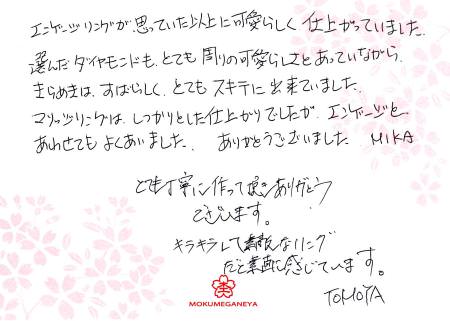 エンゲージリングが思っていた以上に可愛らしく仕上がっていました。
選んだダイヤモンドも、とても周りの可愛らしさとあっていながら、
きらめきは、すばらしく、とてもステキに出来ていました。
マリッジリングは、しっかりとした仕上がりでしたが、エンゲージと
あわせてもよくあいました。 ありがとうございました MIKA
とても丁寧に作って頂きありがとう
ございます。
キラキラして素敵なリング
だと素直に感じています。
TOMOYA
MOKUMEGANEYA